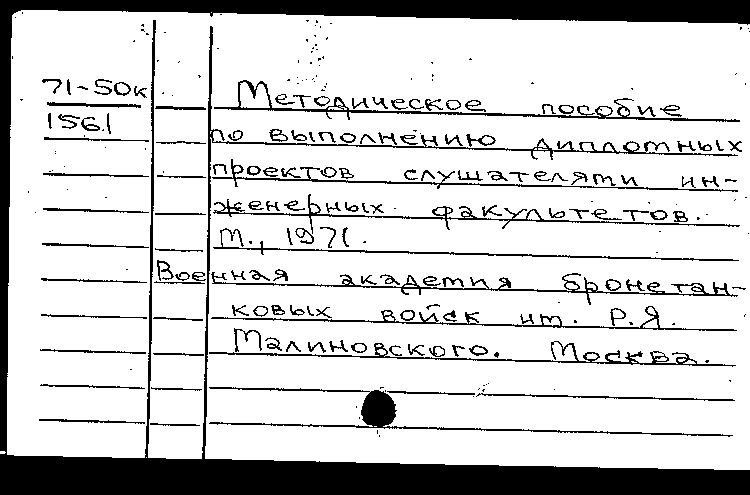 71-50к Методическое пособие
1561
по выполнению дипломных
проектов слушателями ин-
женерных факультетов.
М., 1971.
Военная академия бронетан-
ковых войск им. Р.Я.
Малиновского. Москва.